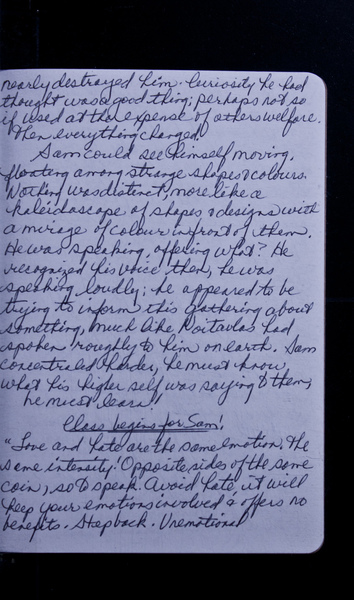 nearly destroyed him. Curiosity he had
thought was a good thing; perhaps not so
if used at the expense of others welfare.
Then everything changed.
Sam could see himself moving,
floating among strange shapes & colours.
Nothing was distinct, more like a
kaleidoscope of shapes & designs with
a mirage of colour infront of them.
He was speaking, offering what? He
recognized his voice, then, he was
speaking loudly; he appeared to be
trying to inform this gathering about
something, much like had
spoken roughly to him on earth. Sam
concentrated harder, he must know
what his higher self was saying to them,
he must learn!
Class begins for Sam!
"Love and hate are the same emotion, the
same intensity. Opposite sides of the same
coin, so to speak. Avoid hate, it will
keep your emotions involved & offers no
benefits. Step back. Unemotional